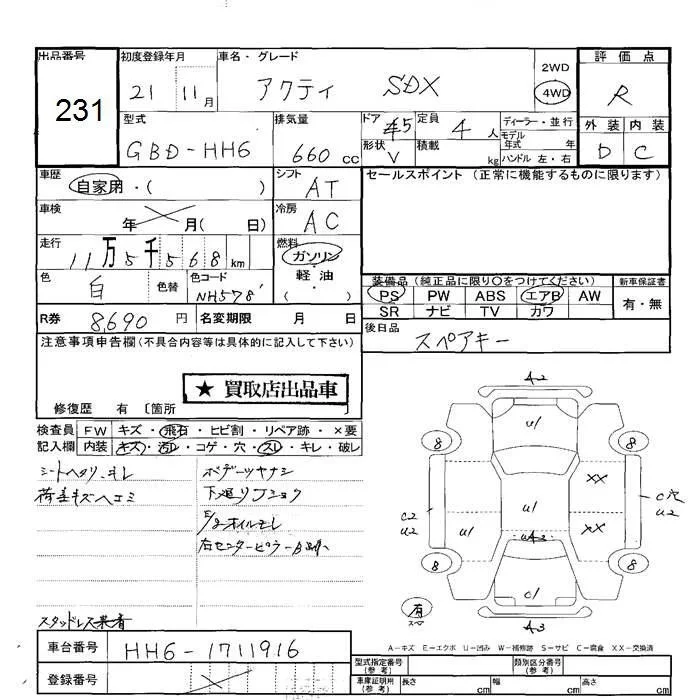 出品番号
231
初度登録年月
21 11月
車名・グレード
アクティ SDX
2WD
4WD
評価点
R
型式
GBD-HH6
排気量
660cc
ドア 5
形状 V
定員 4人
積載 kg
ディーラー・並行
モデル年式 年
ハンドル 左・右
外装 内装
D C
車歴
自家用・( )
シフト
AT
セールスポイント(正常に機能するものに限ります)
車検
年 月( 日)
冷房
AC
走行
11万5千568km
燃料
ガソリン
軽油
( )
色
白
色替
色コード
NH578
装備品(純正品に限り○をつけてください)
PS PW ABS エアB AW
SR ナビ TV カワ
新車保証書
有・無
R券 8,690円
名変期限 月 日
後日品
スペアキー
注意事項申告欄(不具合内容等は具体的に記入して下さい)
★ 買取店出品車
修復歴 有 〔箇所
検査員 FW キズ・飛石・ヒビ割・リペア跡・×要
記入欄 内装 キズ・汚レ・コゲ・穴・スレ・キレ・破レ
シートヘタリ、キレ
荷台キズヘコミ
ボデーツヤナシ
下廻りフショク
E/gオイルモレ
右センターピラー
スタッドレス装着
A2
U1
8
8
XX
C穴
U2
C2
U2
U1
U1
XX
8
8
C1
有
スペア
A3
A-キズ E-エクボ U-凹み W-補修跡 S-サビ C-腐食 XX-交換済
車台番号
HH6-1711916
登録番号
型式指定番号(参考)
類別区分番号(参考)
車庫証明用(参考)
長さ cm
幅 cm
高さ cm